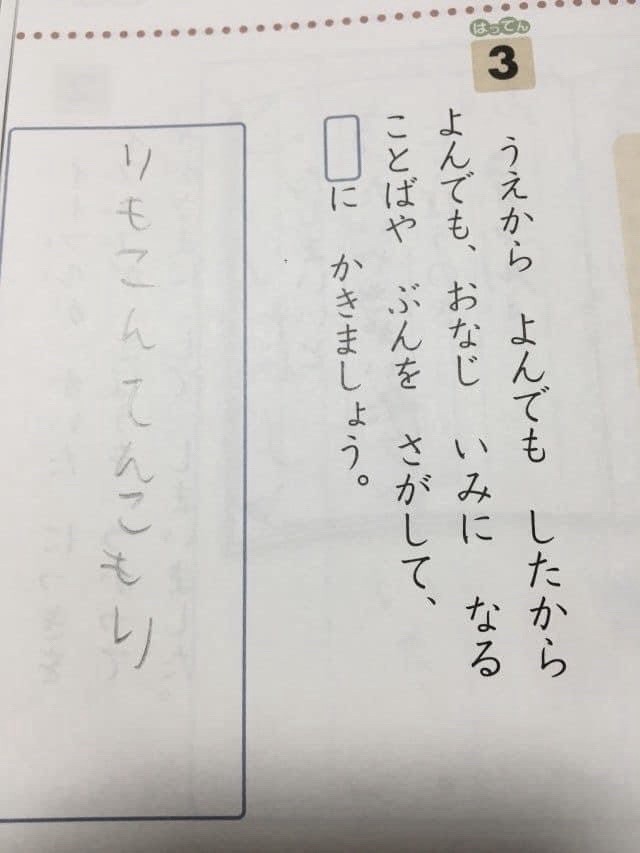 はってん
3
うえから よんでも したから
よんでも、おなじ いみに なる
ことばや ぶんを さがして、
□に かきましょう。
りもこんてんこもり